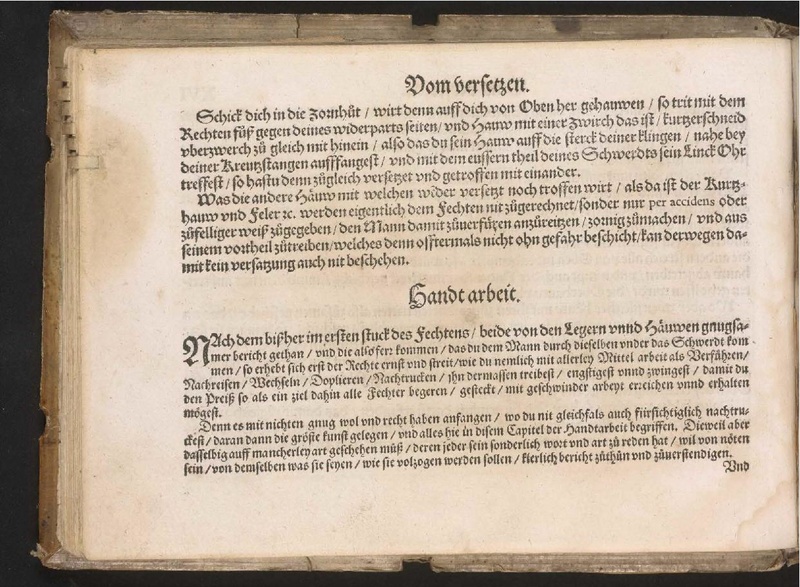 Vom versetzen.
Schick dich in die Zornhůt / wirt denn auff dich von Oben her gehauwen / so trit mit dem
Rechten fůß gegen deines widerparts seiten / vnd Hauw mit einer Zwirch das ist / kurtzerschneid
vberzwerch zů gleich mit hinein / also das du sein Hauw auff die sterck deiner klingen / nahe bey
deiner Kreutzstangen aufffangest / vnd mit dem eussern theil deines Schwerdts sein Linck Ohr
treffest / so hastu denn zůgleich versetzet vnd getroffen mit einander.
Was die andere Häuw mit welchen wider versetzt noch troffen wirt / als da ist der Kurtz-
hauw vnd Feler ꝛc. werden eigentlich dem Fechten nit zůgerechnet / sonder nur per accidens oder
zůfelliger weiß zůgegeben / den Mann damit zůuerfüren anzůreitzen / zornig zůmachen / vnd aus
seinem vortheil zůtreiben / welches denn offtermals nicht ohn gefahr beschicht / kan derwegen da-
mit kein versatzung auch nit beschehen.
Handt arbeit.
NAch dem bißher im ersten stuck des Fechtens / beide von den Legern vnnd Häuwen gnugsa-
mer bericht gethan / vnd die also ferꝛ kommen / das du dem Mann durch dieselben vnder das Schwerdt kom
men / so erhebt sich erst der Rechte ernst vnd streit / wie du nemlich mit allerley Mittel arbeit als Verführen /
Nachreisen / Wechseln / Doplieren / Nachtrucken / jhn dermassen treibest / engstigest vnnd zwingest / damit du
den Preiß so als ein ziel dahin alle Fechter begeren / gesteckt / mit geschwinder arbeyt erreichen vnnd erhalten
mögest.
Denn es mit nichten gnug wol vnd recht haben anfangen / wo du nit gleichfals auch fürsichtiglich nachtru-
ckest / daran dann die gröste kunst gelegen / vnd alles hie in disem Capitel der Handtarbeit begriffen. Dieweil aber
dasselbig auff mancherley art geschehen můß / deren jeder sein sonderlich wort vnd art zů reden hat / wil von nöten
sein / von demselben was sie seyen / wie sie volzogen werden sollen / klerlich bericht zůthůn vnd zůuerstendigen.
Vnd